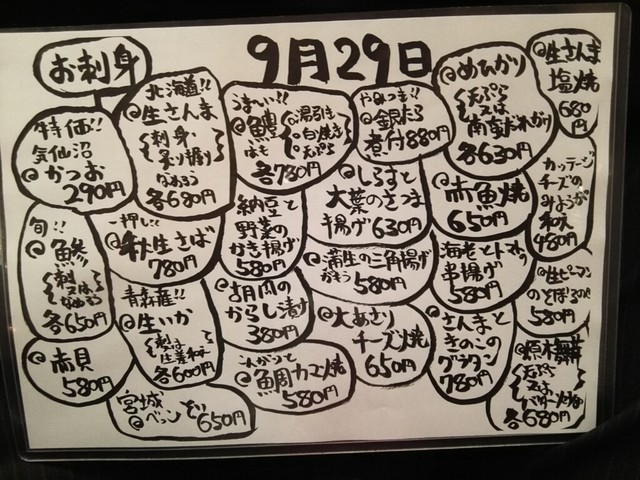 9月29日
お刺身
特価!!
気仙沼
@かつお
290円
北海道!!
@生さんま
刺身
又は
なめろう
各680円
うま〜い!!
@鱧
はも
湯引き
白焼き
天ぷら
各780円
やみつき!!
@銀だら
煮付 880円
@めひかり
天ぷら
又は
南蛮だれがけ
各630円
@生さんま
塩焼
680円
旬!!
@鯵
刺身
又は
なめろう
各650円
一押し!!
@秋生さば
780円
納豆と
野菜の
かき揚げ
580円
@しらすと
大葉のさつま
揚げ 630円
@赤魚焼
650円
カッテージ
チーズの
みょうが
和え
480円
@赤貝
580円
青森産!!
@生いか
刺身
又は
生姜和え
各600円
@胡瓜の
からし漬け
380円
@蒲生の三角揚げ
580円
海老とトマトの
串揚げ
580円
@生ピーマン
580円
宮城
@べっこう
650円
こんがりと
@鯛カマ焼
580円
@大あさり
チーズ焼
650円
@さんまと
きのこの
グラタン
780円
@原木舞茸
天ぷら
又は
バター炒め
各680円